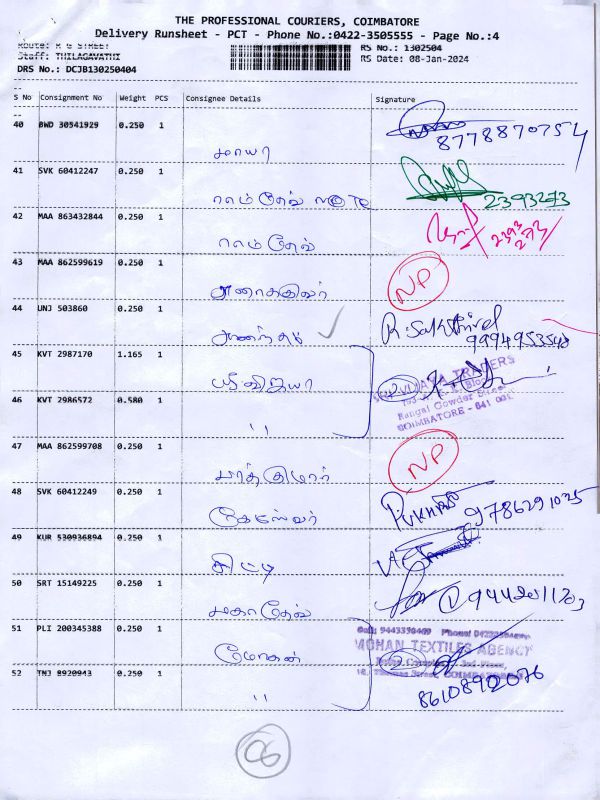 THE PROFESSIONAL COURIERS, COIMBATORE
Delivery Runsheet - PCT - Phone No.:0422-3505555 - Page No.:4
Route: R G STREET
RS No.: 1302504
Staff: THILAGAVATHI
RS Date: 08-Jan-2024
DRS No.: DCJB130250404
S No Consignment No Weight PCS Consignee Details Signature
40 BWD 30541929 0.250 1 மாயா 8778870754
41 SVK 60412247 0.250 1 ராம்தேவ் 2393273
42 MAA 863432844 0.250 1 ராம்தேவ் 2393273
43 MAA 862599619 0.250 1 NP
44 UNJ 503860 0.250 1 ஆனந்த் R. Sakthivel 9994953548
45 KVT 2987170 1.165 1 ஸ்ரீ விஜயா 2 VIJAYA TRADERS
Rangai Gowder Street
COIMBATORE - 641 001
46 KVT 2986572 0.580 1 ,,
47 MAA 862599708 0.250 1 NP
48 SVK 60412249 0.250 1 9786291025
49 KUR 530936894 0.250 1 சிட்டி
50 SRT 15149225 0.250 1 மகாதேவ்
51 PLI 200345388 0.250 1 மோகன் Cell: 9443350409 Phone:
MOHAN TEXTILES AGENCY
2 3rd Floor,
Thomas Street, COIMBATORE
52 TNJ 8920943 0.250 1 ,, 8610892076